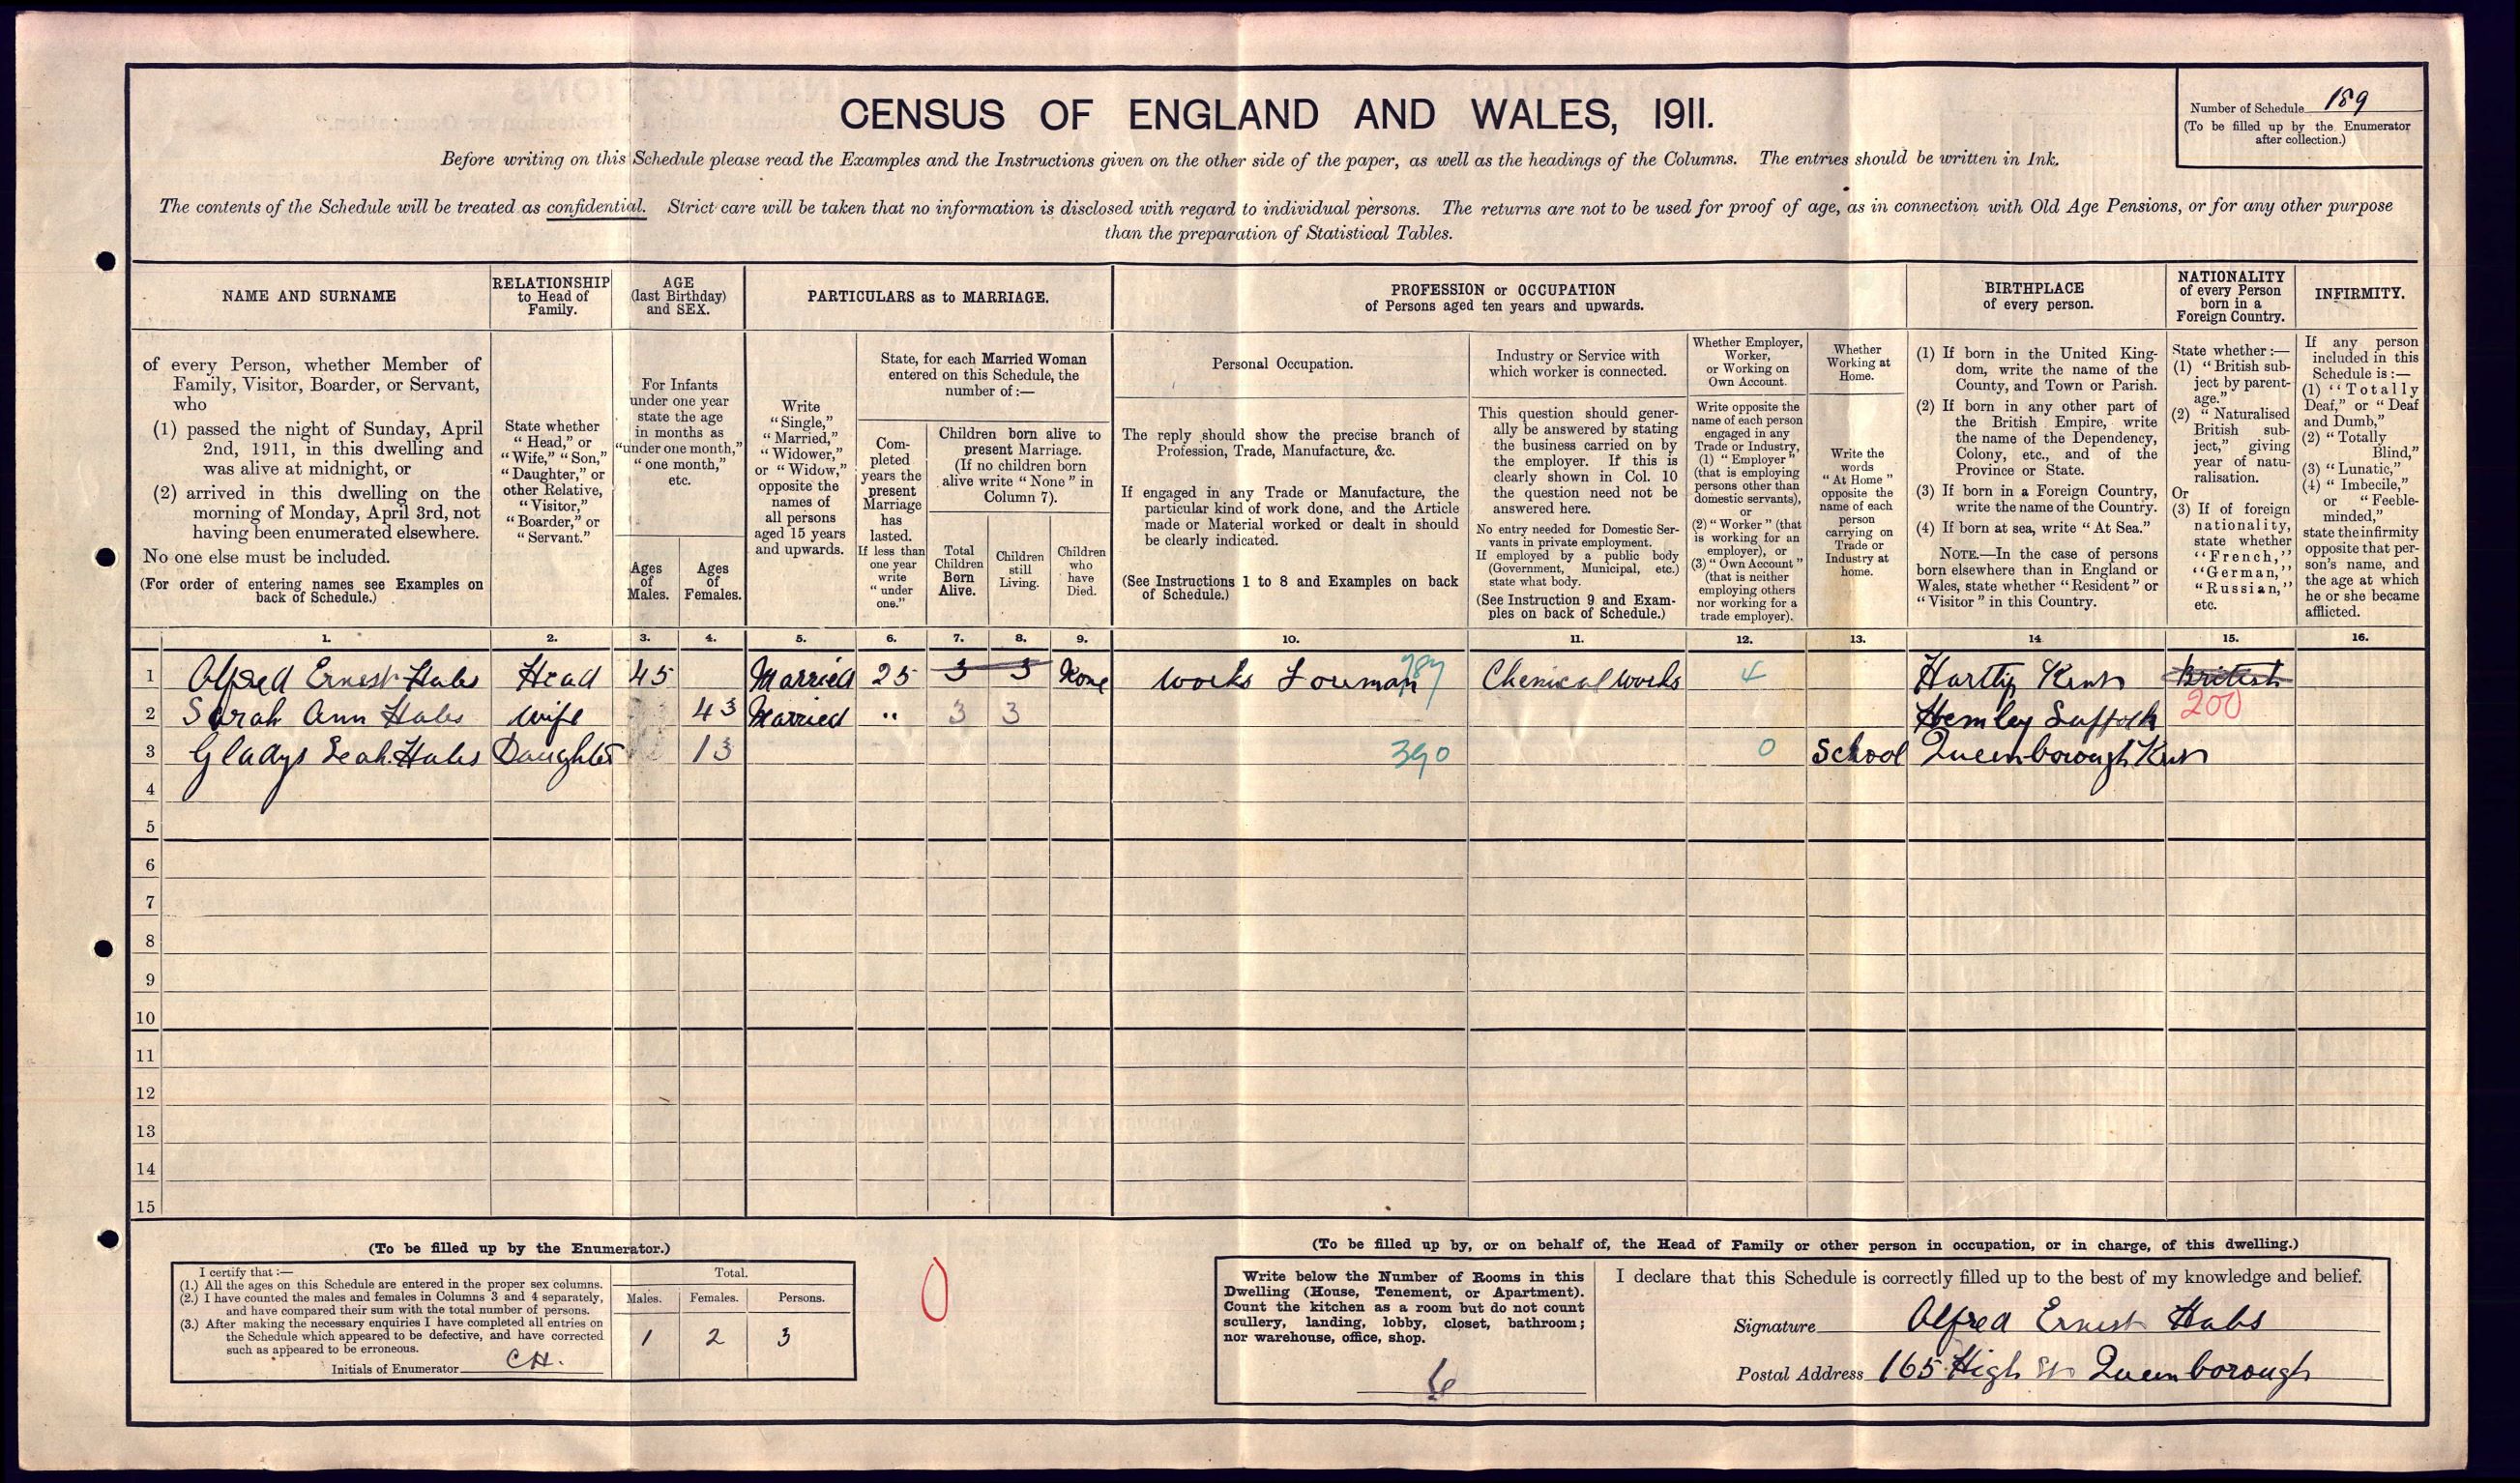 CENSUS OF ENGLAND AND WALES, 1911.
Number of Schedule 189
(To be filled up by the Enumerator
after collection.)
Before writing on this Schedule please read the Examples and the Instructions given on the other side of the paper, as well as the headings of the Columns. The entries should be written in Ink.
The contents of the Schedule will be treated as confidential. Strict care will be taken that no information is disclosed with regard to individual persons. The returns are not to be used for proof of age, as in connection with Old Age Pensions, or for any other purpose
than the preparation of Statistical Tables.
NAME AND SURNAME
of every Person, whether Member of
Family, Visitor, Boarder, or Servant,
who
(1) passed the night of Sunday, April
2nd, 1911, in this dwelling and
was alive at midnight, or
(2) arrived in this dwelling on the
morning of Monday, April 3rd, not
having been enumerated elsewhere.
No one else must be included.
(For order of entering names see Examples on
back of Schedule.)
RELATIONSHIP
to Head of
Family.
State whether
"Head," or
"Wife," "Son,"
"Daughter," or
other Relative,
"Visitor,"
"Boarder," or
"Servant."
AGE
(last Birthday)
and SEX.
For Infants
under one year
state the age
in months as
"under one month,"
"one month,"
etc.
Ages
of
Males.
Ages
of
Females.
PARTICULARS as to MARRIAGE.
Write
"Single,"
"Married,"
"Widower,"
or "Widow,"
opposite the
names of
all persons
aged 15 years
and upwards.
State, for each Married Woman
entered on this Schedule, the
number of:—
Com-
pleted
years the
present
Marriage
has
lasted.
If less than
one year
write
"under
one."
Children born alive to
present Marriage.
(If no children born
alive write "None" in
Column 7).
Total
Children
Born
Alive.
Children
still
Living.
Children
who
have
Died.
PROFESSION or OCCUPATION
of Persons aged ten years and upwards.
Personal Occupation.
The reply should show the precise branch of
Profession, Trade, Manufacture, &c.
If engaged in any Trade or Manufacture, the
particular kind of work done, and the Article
made or Material worked or dealt in should
be clearly indicated.
(See Instructions 1 to 8 and Examples on back
of Schedule.)
Industry or Service with
which worker is connected.
This question should gener-
ally be answered by stating
the business carried on by
the employer. If this is
clearly shown in Col. 10
the question need not be
answered here.
No entry needed for Domestic Ser-
vants in private employment.
If employed by a public body
(Government, Municipal, etc.)
state what body.
(See Instruction 9 and Exam-
ples on back of Schedule.)
Whether Employer,
Worker,
or Working on
Own Account.
Write opposite the
name of each person
engaged in any
Trade or Industry,
(1) "Employer"
(that is employing
persons other than
domestic servants),
or
(2) "Worker" (that
is working for an
employer), or
(3) "Own Account"
(that is neither
employing others
nor working for a
trade employer).
Whether
Working at
Home.
Write the
words
"At Home"
opposite the
name of each
person
carrying on
Trade or
Industry at
home.
BIRTHPLACE
of every person.
(1) If born in the United King-
dom, write the name of the
County, and Town or Parish.
(2) If born in any other part of
the British Empire, write
the name of the Dependency,
Colony, etc., and of the
Province or State.
(3) If born in a Foreign Country,
write the name of the Country.
(4) If born at sea, write "At Sea."
NOTE.—In the case of persons
born elsewhere than in England or
Wales, state whether "Resident" or
"Visitor" in this Country.
NATIONALITY
of every Person
born in a
Foreign Country.
State whether:—
(1) "British sub-
ject by parent-
age."
(2) "Naturalised
British sub-
ject," giving
year of natu-
ralisation.
Or
(3) If of foreign
nationality,
state whether
"French,"
"German,"
"Russian,"
etc.
INFIRMITY.
If any person
included in this
Schedule is:—
(1) "Totally
Deaf," or "Deaf
and Dumb,"
(2) "Totally
Blind,"
(3) "Lunatic,"
(4) "Imbecile,"
or "Feeble-
minded,"
state the infirmity
opposite that per-
son's name, and
the age at which
he or she became
afflicted.
1. 2. 3. 4. 5. 6. 7. 8. 9. 10. 11. 12. 13. 14 15. 16.
1 Alfred Ernest Hales Head 45 Married 25 3 3 None Works Forman Chemical Works 4 Hartlip Kent British
2 Sarah Ann Hales Wife 43 Married " 3 3 Hemley Suffolk 200
3 Gladys Leah Hales Daughter 13 390 0 School Queenborough Kent
4
5
6
7
8
9
10
11
12
13
14
15
(To be filled up by the Enumerator.)
I certify that:—
(1.) All the ages on this Schedule are entered in the proper sex columns.
(2.) I have counted the males and females in Columns 3 and 4 separately,
and have compared their sum with the total number of persons.
(3.) After making the necessary enquiries I have completed all entries on
the Schedule which appeared to be defective, and have corrected
such as appeared to be erroneous.
Initials of Enumerator CH.
Total.
Males. Females. Persons.
1 2 3
0
(To be filled up by, or on behalf of, the Head of Family or other person in occupation, or in charge, of this dwelling.)
Write below the Number of Rooms in this
Dwelling (House, Tenement, or Apartment).
Count the kitchen as a room but do not count
scullery, landing, lobby, closet, bathroom;
nor warehouse, office, shop.
6
I declare that this Schedule is correctly filled up to the best of my knowledge and belief.
Signature Alfred Ernest Hales
Postal Address 165 High St Queenborough